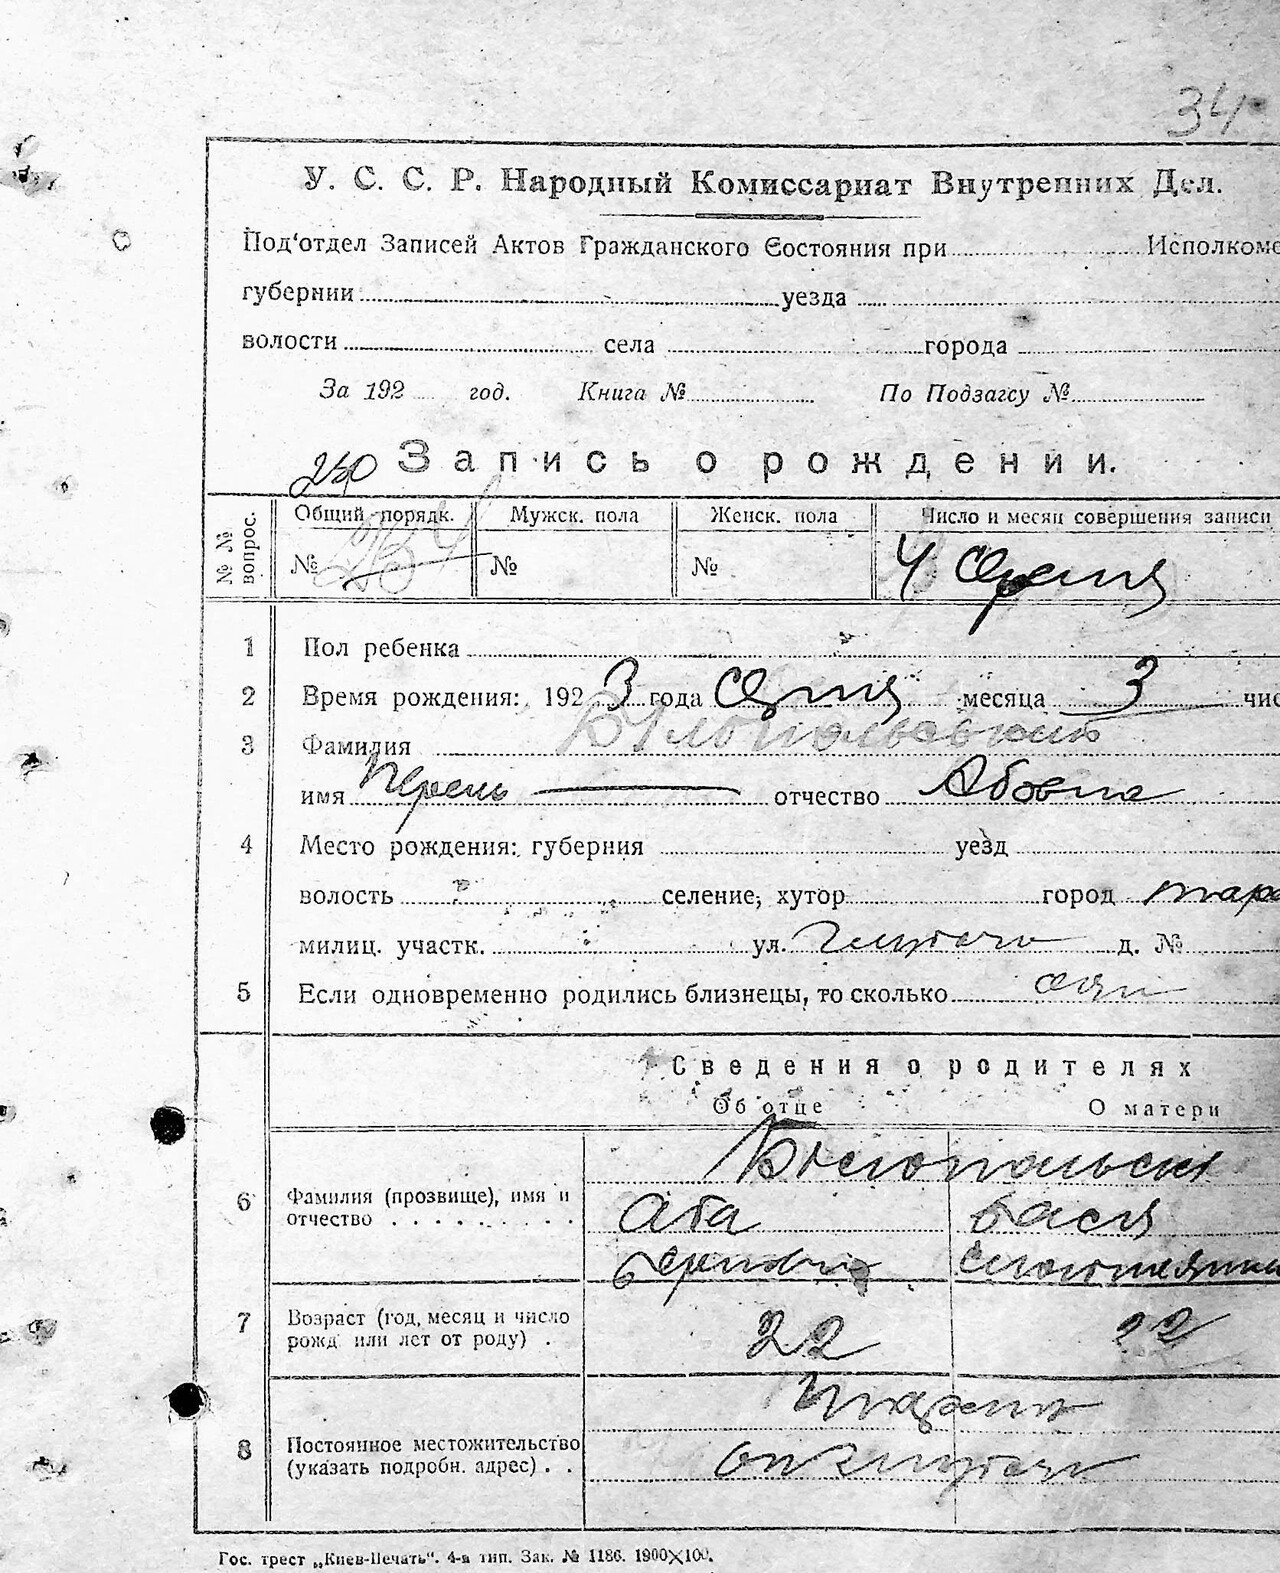 34
У. С. С. Р. Народный Комиссариат Внутренних Дел.
Под‘отдел Записей Актов Гражданского Состояния при Исполкоме
губернии уезда
волости села города
За 192 год. Книга № По Подзагсу №
250 Запись о рождении.
№ № вопрос. Общий порядк. Мужск. пола Женск. пола Число и месяц совершения записи
№ 234 № № 4
1 Пол ребенка
2 Время рождения: 1923 года месяца 3 чис
3 Фамилия
имя Перель отчество Абовна
4 Место рождения: губерния уезд
волость селение, хутор город тара
милиц. участк. ул. д. №
5 Если одновременно родились близнецы, то сколько один
Сведения о родителях
Об отце О матери
6 Фамилия (прозвище), имя и Белопольски
отчество . . . . . . . . . Аба Бася
7 Возраст (год, месяц и число
рожд или лет от роду) . 22 22
8 Постоянное местожительство
(указать подробн. адрес) . .
Гос. трест „Киев-Печать“. 4-я тип. Зак. № 1186. 1900×100.